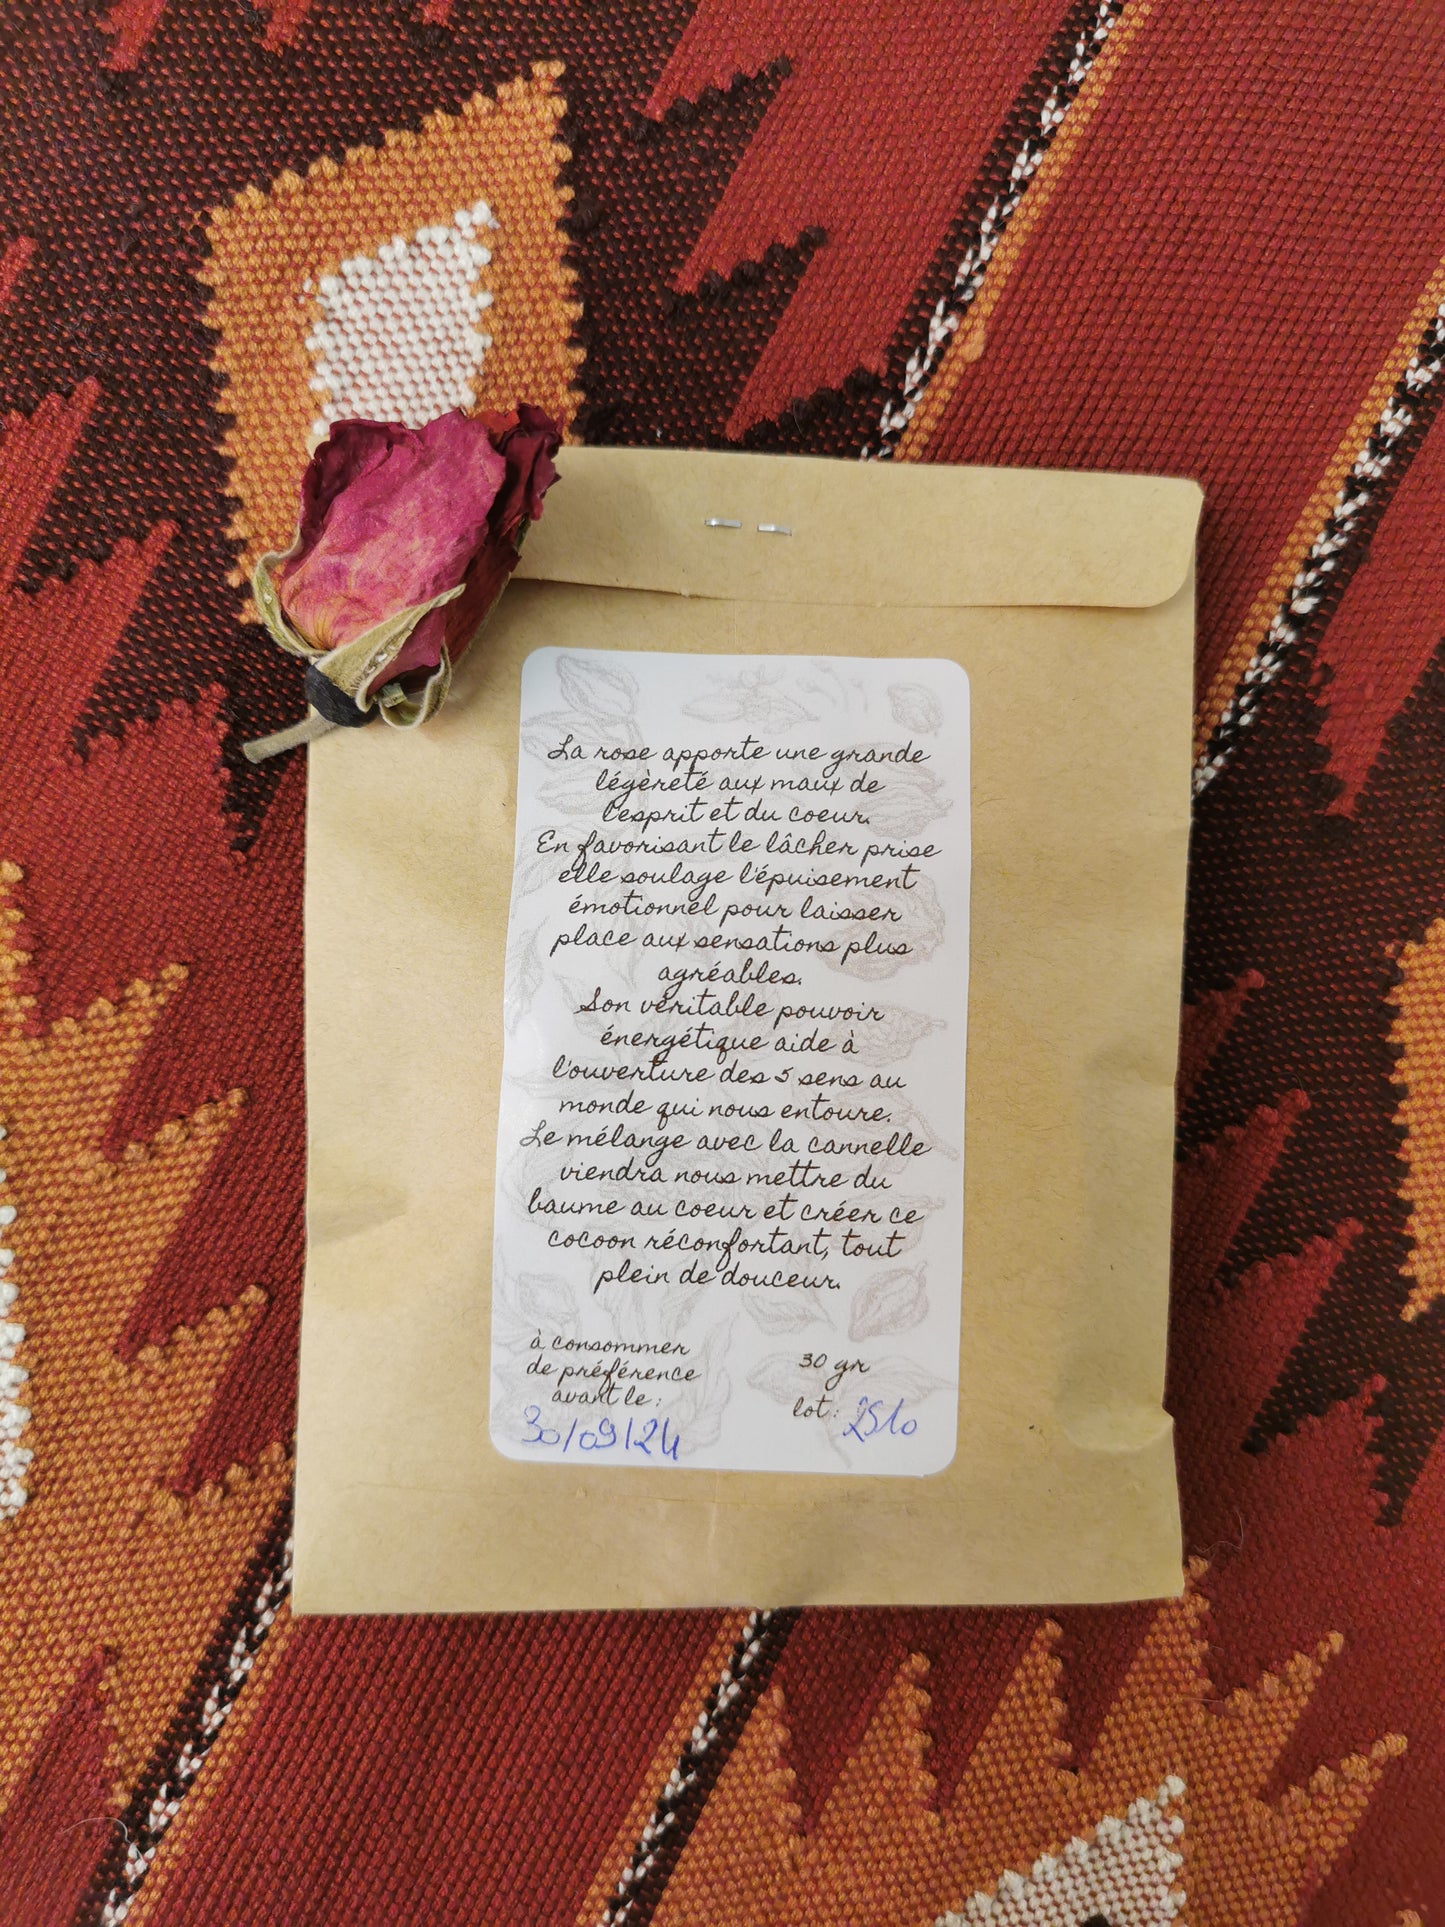 La rose apporte une grande
légèreté aux maux de
l'esprit et du coeur.
En favorisant le lâcher prise
elle soulage l'épuisement
émotionnel pour laisser
place aux sensations plus
agréables.
Son véritable pouvoir
énergétique aide à
l'ouverture des 5 sens au
monde qui nous entoure.
Le mélange avec la cannelle
viendra nous mettre du
baume au coeur et créer ce
cocoon réconfortant, tout
plein de douceur.
à consommer
de préférence
avant le :
30/09/24
30 gr
lot : 2510